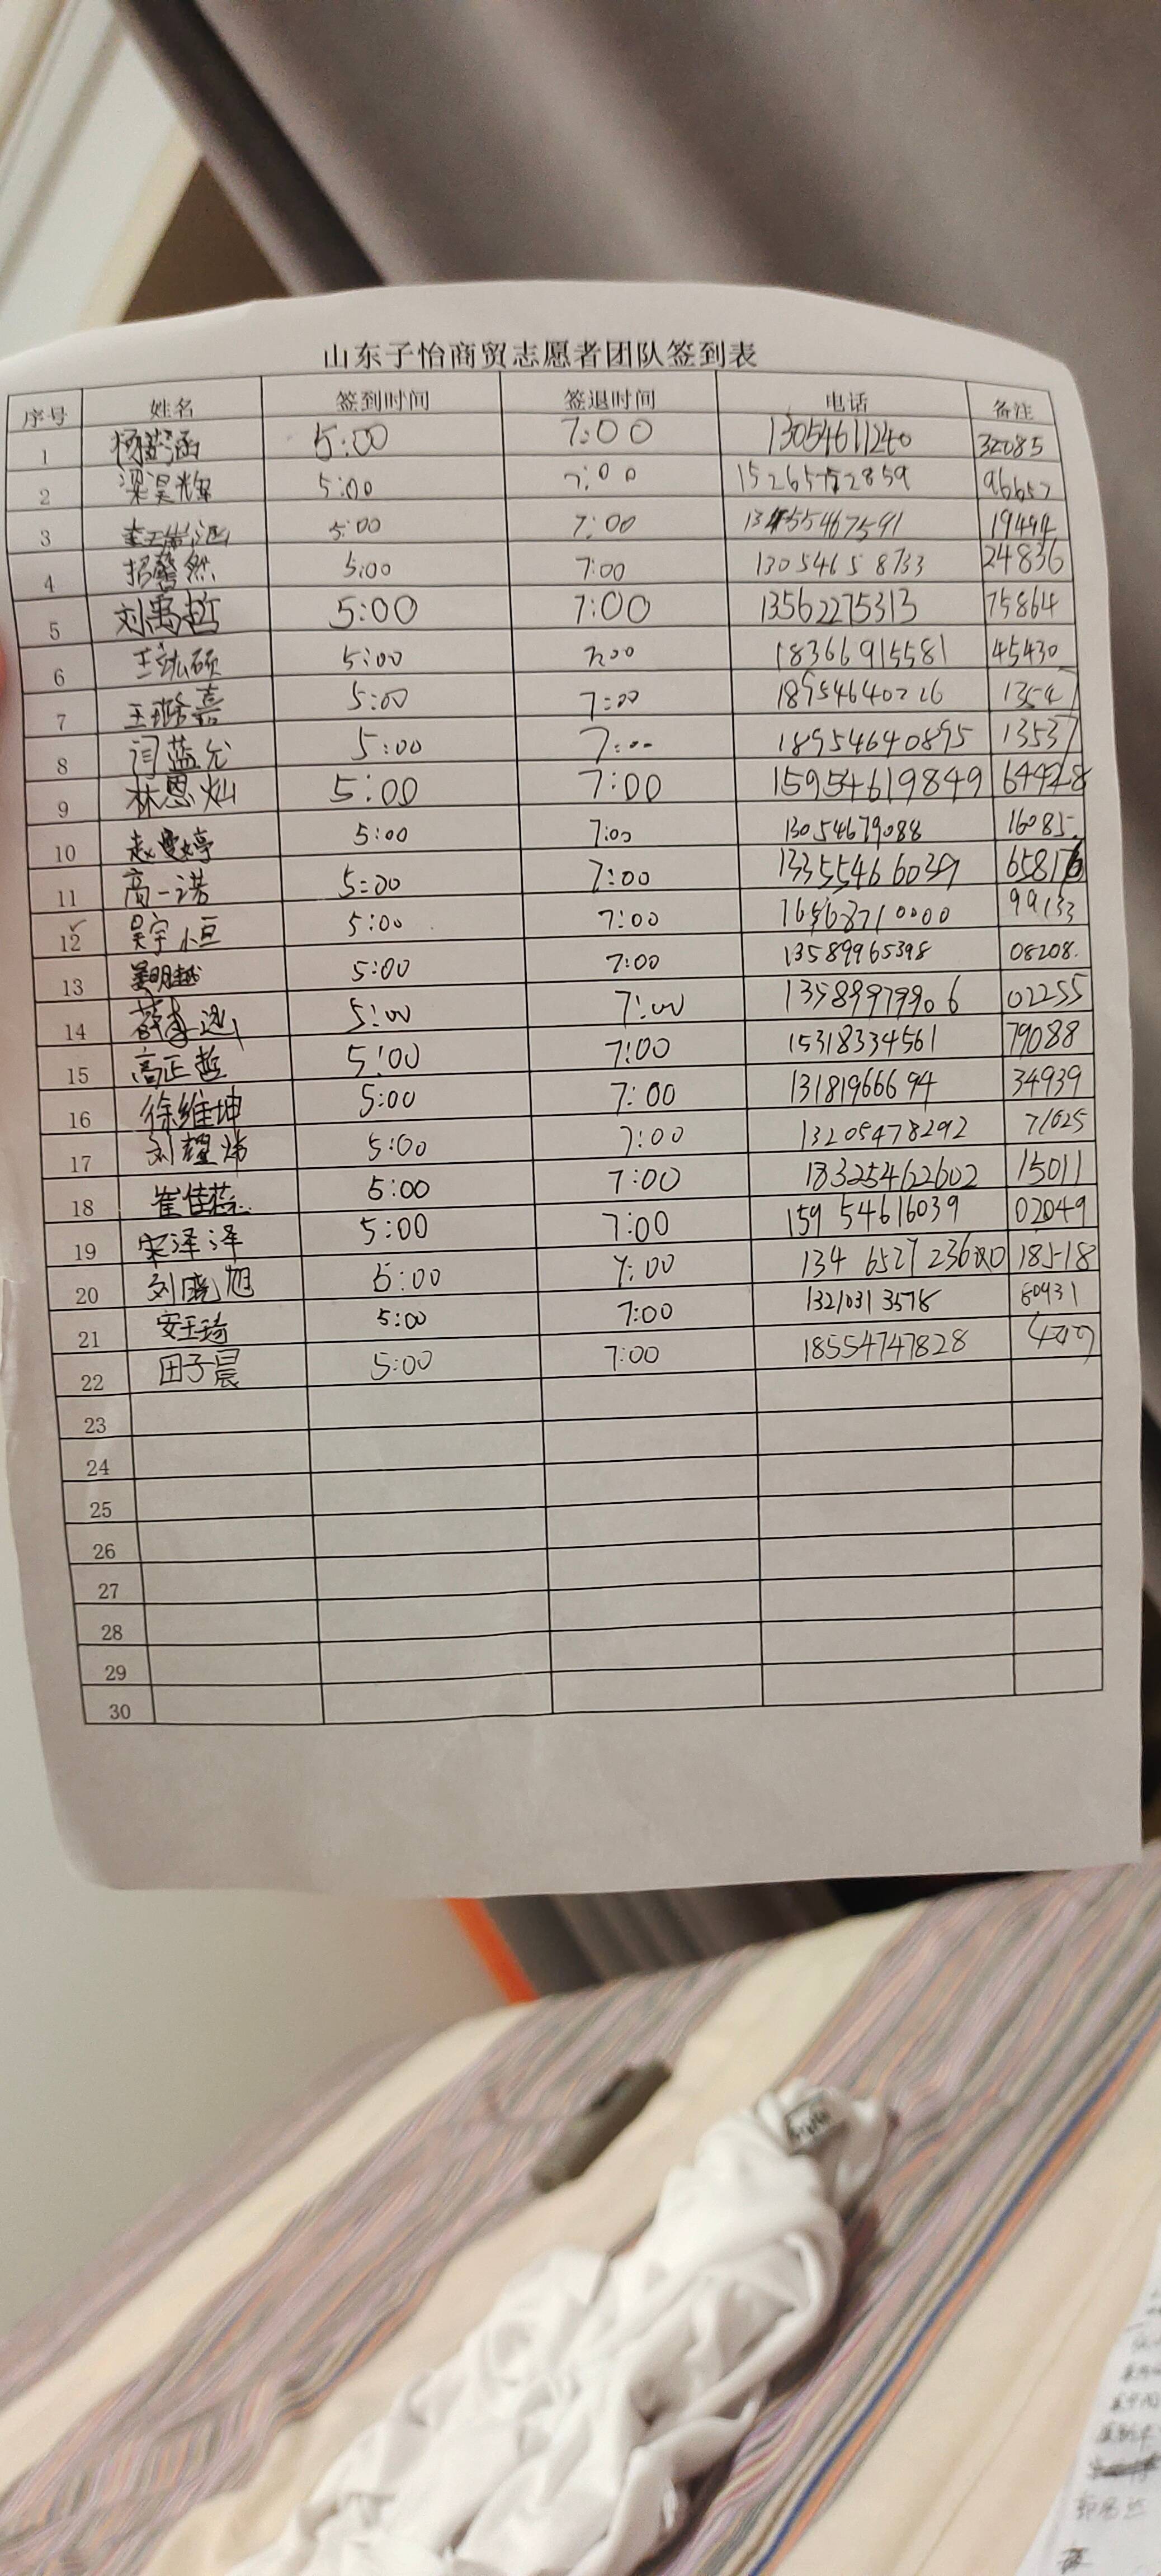 山东子怡商贸志愿者团队签到表
序号 姓名 签到时间 签退时间 电话 备注
1 5:00 7:00 13054611240 32085
2 梁昊辉 5:00 7:00 96657
3 5:00 7:00 19494
4 5:00 7:00 13054658733 24836
5 刘禹哲 5:00 7:00 13562275313 75864
6 王竑硕 5:00 7:00 18366915581 45430
7 王璐嘉 5:00 7:00 18954640226
8 闫蓝允 5:00 7:00 18954640895 13537
9 林恩灿 5:00 7:00 15954619849 64428
10 赵曼婷 5:00 7:00 13054679088 16085
11 高一诺 5:00 7:00 13355466039 65816
12 吴宇恒 5:00 7:00 99133
13 姜明越 5:00 7:00 13589965398 08208
14 5:00 7:00 13589979906 02255
15 高正哲 5:00 7:00 15318334561 79088
16 徐维坤 5:00 7:00 13181966694 34939
17 刘耀炜 5:00 7:00 13205478292 71025
18 5:00 7:00 18325462602 15011
19 宋泽泽 5:00 7:00 15954616039 02049
20 刘晓旭 5:00 7:00 18518
21 安玉琦 5:00 7:00 13210313578 80931
22 田子晨 5:00 7:00 18554747828
23
24
25
26
27
28
29
30